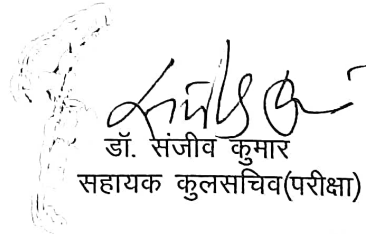 डॉ. संजीव कुमार
सहायक कुलसचिव(परीक्षा)